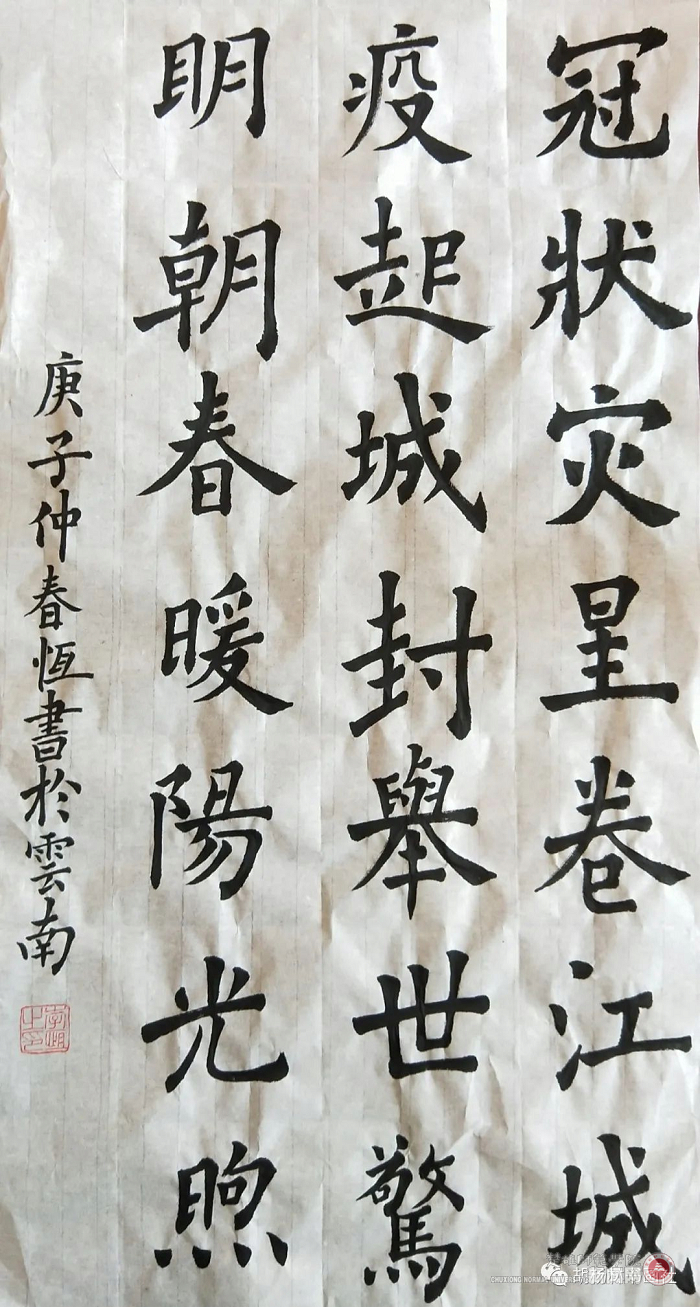 冠狀灾星卷江城
疫起城封舉世驚
明朝春暖陽光煦
庚子仲春恆書於雲南
CHUXIONG NORMAL UNIVERSITY